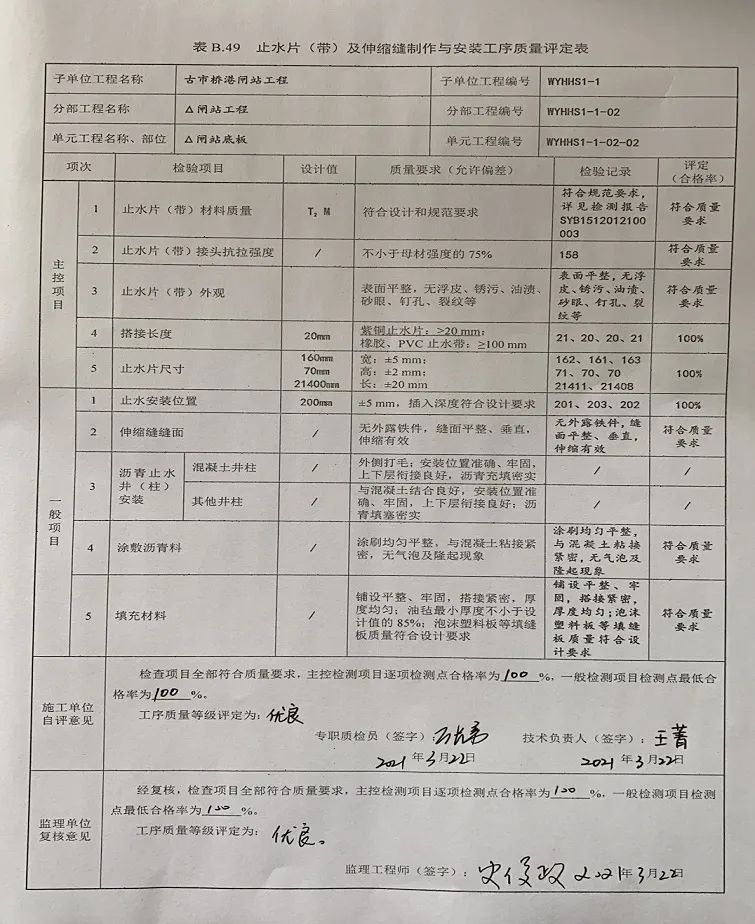 表 B.49 止水片（带）及伸缩缝制作与安装工序质量评定表
子单位工程名称 古市桥港闸站工程 子单位工程编号 WYHHS1-1
分部工程名称 △闸站工程 分部工程编号 WYHHS1-1-02
单元工程名称、部位 △闸站底板 单元工程编号 WYHHS1-1-02-02
项次 检验项目 设计值 质量要求（允许偏差） 检验记录 评定（合格率）
主控项目
1 止水片（带）材料质量 T₂ M 符合设计和规范要求
符合规范要求，
详见检测报告
SYB1512012100
003
符合质量
要求
2 止水片（带）接头抗拉强度 / 不小于母材强度的 75% 158
符合质量
要求
3 止水片（带）外观
表面平整，无浮皮、锈污、油渍、
砂眼、钉孔、裂纹等
表面平整，无浮
皮、锈污、油渍、
砂眼、钉孔、裂
纹等
符合质量
要求
4 搭接长度 20mm
紫铜止水片：≥20 mm；
橡胶、PVC 止水带：≥100 mm
21、20、20、21 100%
5 止水片尺寸
160mm
70mm
21400mm
宽：±5 mm；
高：±2 mm；
长：±20 mm
162、161、163
71、70、70
21411、21408
100%
一般项目
1 止水安装位置 200mm ±5 mm，插入深度符合设计要求 201、203、202 100%
2 伸缩缝缝面 /
无外露铁件，缝面平整、垂直，
伸缩有效
无外露铁件，缝
面平整、垂直，
伸缩有效
符合质量
要求
3
沥青止水
井（柱）
安装
混凝土井柱 /
外侧打毛；安装位置准确、牢固，
上下层衔接良好，沥青充填密实
/ /
其他井柱 /
与混凝土结合良好，安装位置准
确、牢固，上下层衔接良好；沥
青填塞密实
/ /
4 涂敷沥青料 /
涂刷均匀平整，与混凝土粘接紧
密，无气泡及隆起现象
涂刷均匀平整，
与混凝土粘接
紧密，无气泡及
隆起现象
符合质量
要求
5 填充材料 /
铺设平整、牢固，搭接紧密，厚
度均匀；油毡最小厚度不小于设
计值的 85%；泡沫塑料板等填缝
板质量符合设计要求
铺设平整、牢
固，搭接紧密，
厚度均匀；泡沫
塑料板等填缝
板质量符合设
计要求
符合质量
要求
施工单位
自评意见
检查项目全部符合质量要求，主控检测项目逐项检测点合格率为100 %，一般检测项目检测点最低合
格率为100 %。
工序质量等级评定为：优良
专职质检员（签字）： 技术负责人（签字）：王菁
2021 年3月22日 2021 年3月22日
监理单位
复核意见
经复核，检查项目全部符合质量要求，主控检测项目逐项检测点合格率为100 %，一般检测项目检测
点最低合格率为100 %。
工序质量等级评定为： 优良。
监理工程师（签字）： 史俊政 2021年3月22日